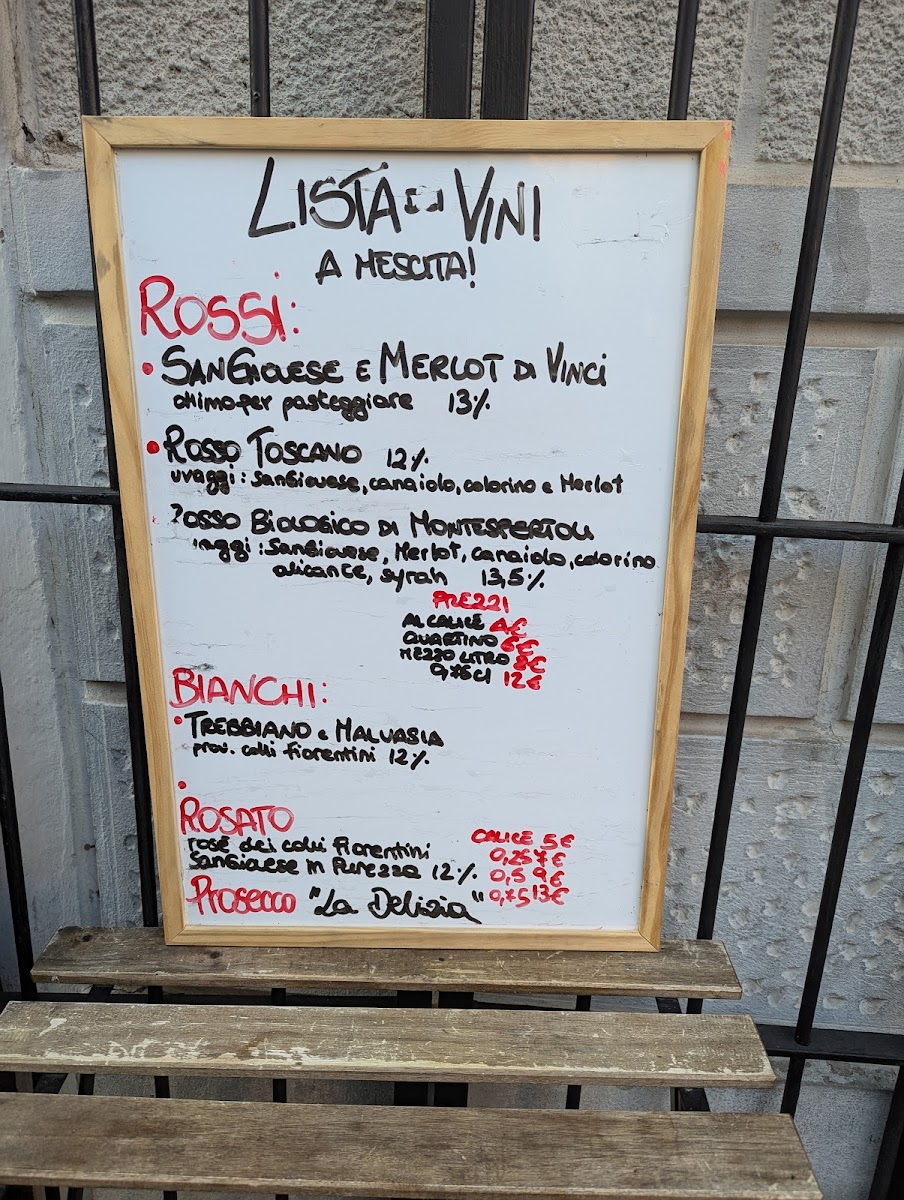 LISTA DI VINI
A MESCITA!
ROSSI:
• SANGIOVESE E MERLOT DI VINCI
ottimo per pasteggiare 13%
• ROSSO TOSCANO 12%
uvaggi: Sangiovese, canaiolo, colorino e Merlot
ROSSO BIOLOGICO DI MONTESPERTOLI
uvaggi: Sangiovese, Merlot, canaiolo, colorino
alicante, syrah 13,5%
PREZZI
AL CALICE 4€
QUARTINO 6€
MEZZO LITRO 8€
0,75Cl 12€
BIANCHI:
• TREBBIANO e MALVASIA
prov. colli fiorentini 12%
•
ROSATO
rosé dei colli Fiorentini
Sangiovese in Purezza 12%
CALICE 5€
0,25 7€
0,5 9€
0,75 13€
Prosecco "La Delizia"